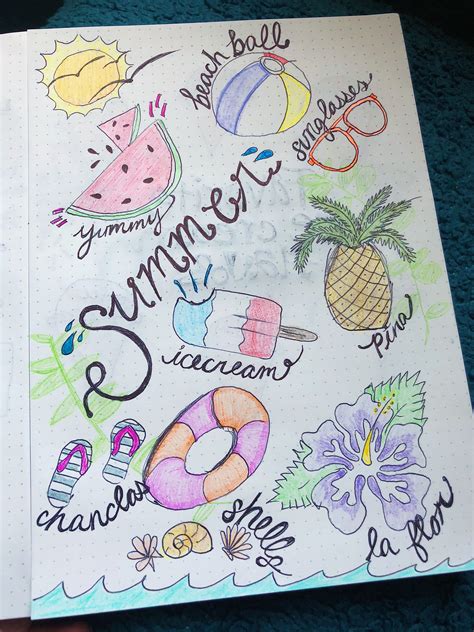 beach ball
sunglasses
yummy
Summer
pina
icecream
chanclas
shells
la flor